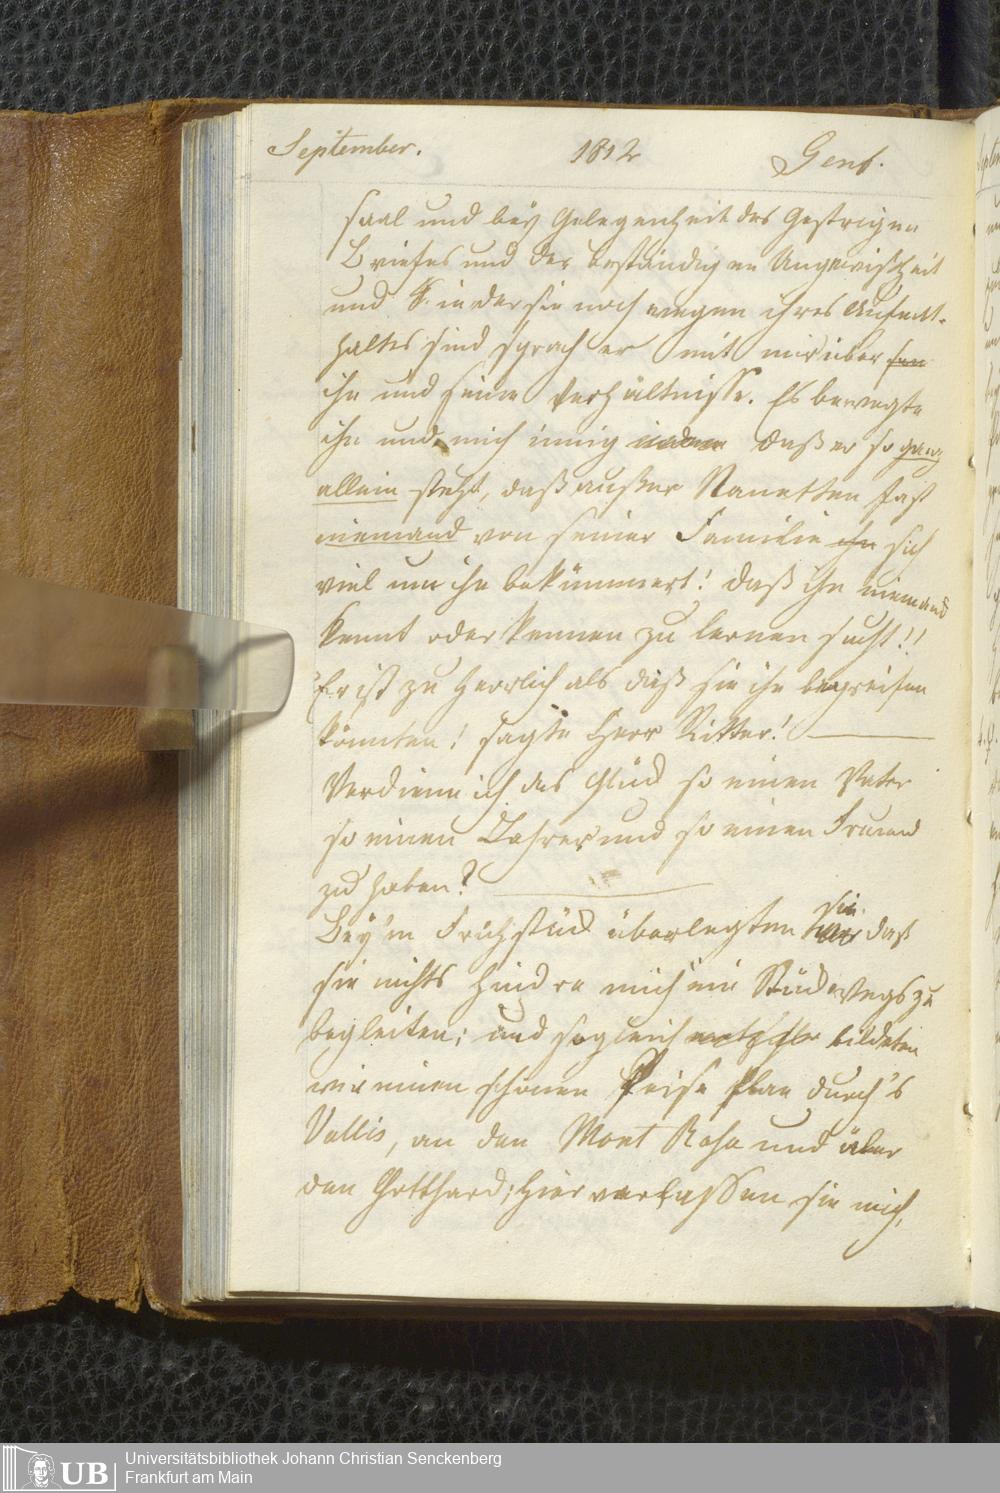 September. 1812 Genf.
saal und bëy Gelegenheit des Gestrigen
Briefes und der beständigen Ungewißheit
und in der sie noch wegen ihres Aufent-
haltes sind sprach er mit mir über
ihn und seine Verhältnisse. Es bewegte
ihn und mich innig daß er so ganz
allein steht, daß außer Nanetten fast
niemand von seiner Familie ihn sich
viel um ihn bekümmert! daß ihn niemand
kennt oder kennen zu lernen sucht!!
Er ist zu herrlich als daß sie ihn begreifen
könnten! sagte Herr Ritter! —
Verdiene ich das Glück so einen Vater
so einen Lehrer und so einen Freund
zu haben? —
sie
Bëy'm Frühstück überlegten wir daß
sie nichts hindre mich ein Stück Wegs zu
begleiten; und sogleich bildeten
wir einen schönen Reise Plan durch's
Vallis, an den Mont Rosa und über
den Gotthard; hier verlassen sie mich,
Universitätsbibliothek Johann Christian Senckenberg
Frankfurt am Main
UB